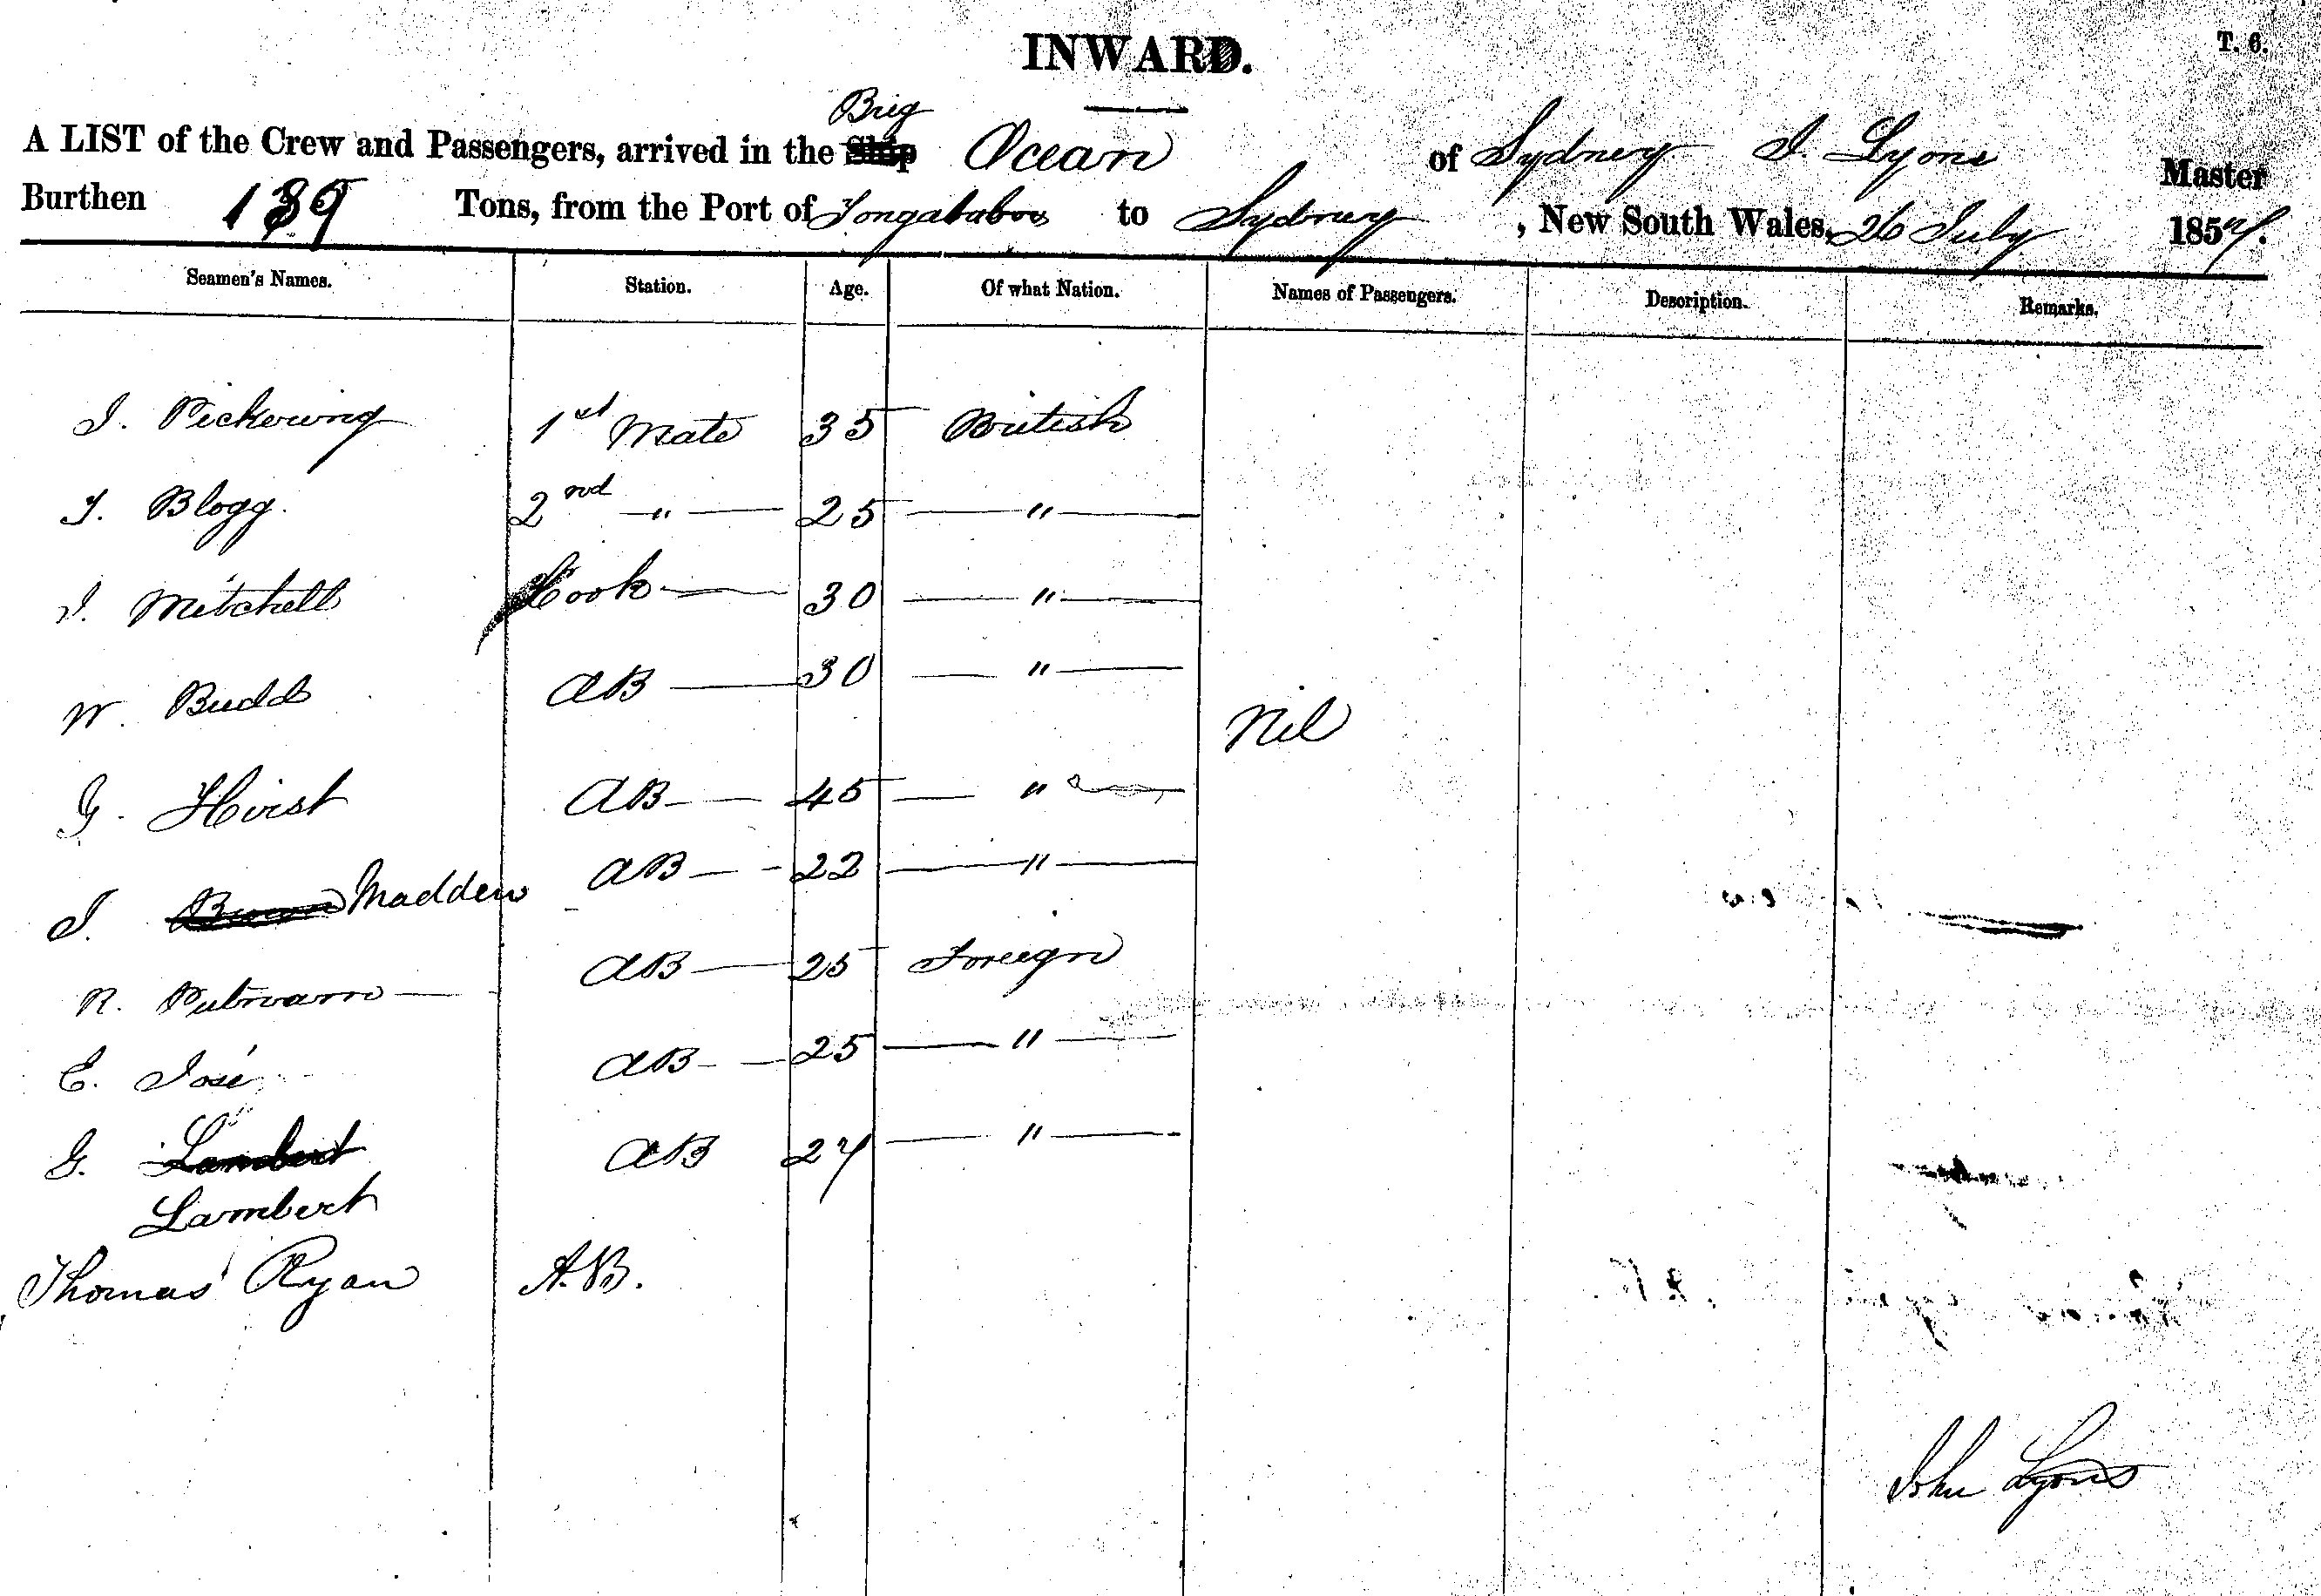 INWARD.
T. 6.
Brig
A LIST of the Crew and Passengers, arrived in the Ship Ocean of Sydney J. Lyons Master
Burthen 139 Tons, from the Port of Tongataboo to Sydney, New South Wales, 26 July 1857.
Seamen's Names. Station. Age. Of what Nation. Names of Passengers. Description. Remarks.
J. Pickering 1st Mate 35 British
T. Blogg. 2nd " 25 "
J. Mitchell Cook 30 "
W. Budd AB 30 "
Nil
G. Hirst AB 45 "
J. Brown Madden AB 22 "
R. Putnam AB 25 Foreign
E. José AB 25 "
G. Lambert AB 27 "
Lambert
Thomas Ryan A.B.
John Lyons